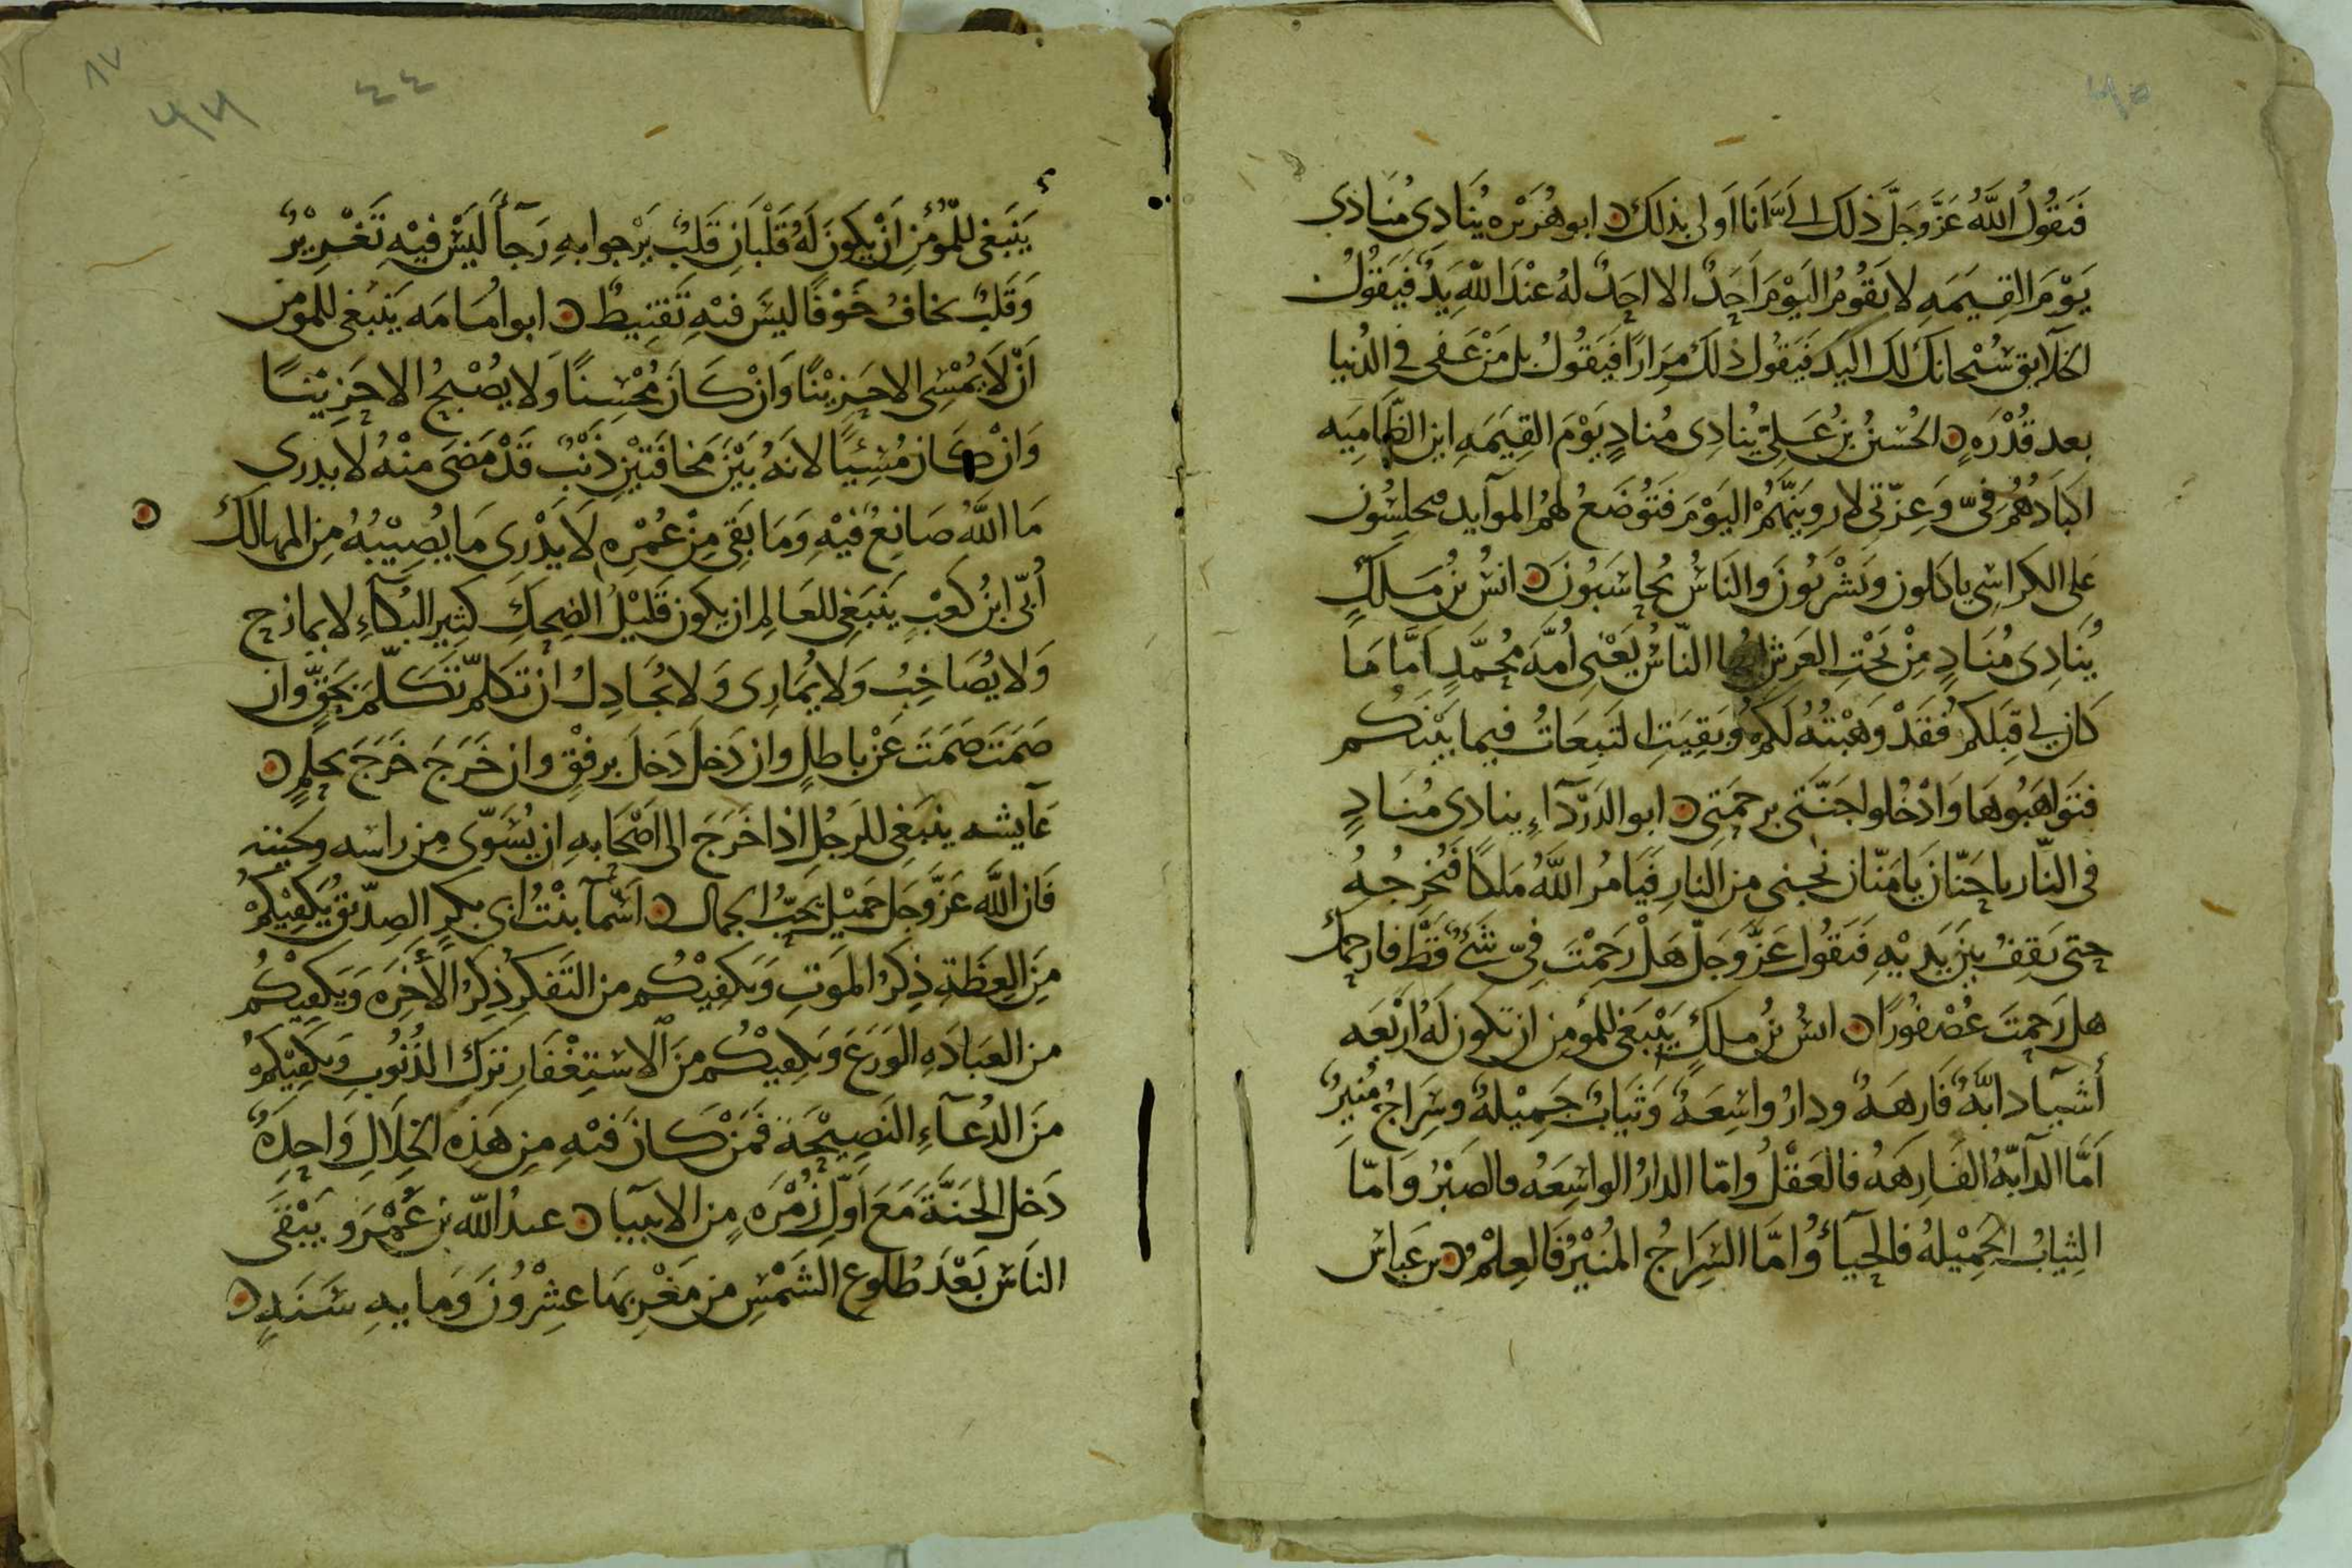 فَيَقُولُ اللَّهُ عَزَّ وَجَلَّ ذلك الىَّ انَا اَولى بذلكَ ابو هُرَيْره يُنَادِى مُنَادى
يَوْمَ القِيمَهِ لا يَقُومُ اليَوْمَ اَحَدٌ الا احَدٌ لهُ عنْدَ اللّهِ يَدٌ فَيَقُولُ
الخلآيق سُبْحانكَ لك اليَد فَيَقُول ذلك مِرَارًا فَيَقُولُ بل مَنْ عَفى فى الدُنيا
بعد قُدْرَهٍ الحُسَينُ بنُ عَلِىّ يُنادِى مُنادٍ يَوْمَ القِيمَهِ اين الظَّامِيَه
اكبَادُهُمْ فىّ وَعِزّتى لارويَنَّهُمْ اليَوْمَ فَتُوضَعُ لهُم الموآيد فيجلسُون
عَلى الكراسى ياكلون وَيَشْرَبُونَ والنَاسُ يُحاسَبُونَ انسُ بنُ مَلكٍ
يُنَادِى مُنَادٍ مِنْ تَحْتِ العَرشِ ايها النّاسُ يَعْنى اُمَّهَ مُحمَّدٍ اَمَّا مَا
كَان لى قِبَلكم فَقَدْ وَهَبْتُهُ لَكمْ وَبَقِيَتِ التَبِعَاتُ فيما بَيْنَكُم
فتَواهَبُوهَا وَادْخُلوا جَنّتى برحمَتى ابو الدَرْدَآءِ ينادى مُنَادٍ
فى النّار يا حَنّانَ يا مَنّان نجنى من النار فَيَامُر اللَّهُ مَلكًا فَيُخرجُهُ
حتى يَقِفُ بينَ يَدَيْهِ فَيَقُول عَزَّ وَجَلّ هَلْ رَحِمْتَ فىّ شَىءٌ قَطّ فارحمك
هل رَحِمتَ عُصْفُورًا انسُ بنُ ملكٍ يَنْبَغى للمُومِن ان تكون لهُ اَرْبَعَه
أشيَآ دابّهٌ فَارِهَهٌ ودارٌ واسِعَهٌ وَثيَابٌ جَمِيْلهٌ وسِرَاجٌ مُنيرٌ
اَمَّا الدآبّهُ الفَارِهَهُ فالعَقْلُ وامّا الدارُ الواسِعَهُ فالصَبْرُ وَامّا
الثيابُ الجَمِيْلهُ فالحيَآءُ وَامَّا السِرَاجُ المنُيْرُ فَالعِلمْ بن عَباس
يَنبَغى للْمُؤْمِنِ اَنْ يكونَ لَهُ قَلْبَانِ قَلبٌ يَرْجوا بهِ رَجآأً لَيْسَ فيْهِ تَغْرِيْرٌ
وَقَلبٌ يخافُ خَوْفًا ليسَ فيْهِ تَقنِيطٌ ابو امُامَه يَنبَغى للمومن
اَنْ لاَ يُمْسِى الا حَزيْنًا وَانْ كَانَ مُحْسِنًا وَلا يُصْبحُ الا حَزِيْنًا
وَانْ كَان مُسِيًا لانهُ بَيْنَ مَخافَتَيْنِ ذَنْبٌ قَدْ مَضَى منْهُ لا يدرى
مَا اللَّهُ صَانِعٌ فيْهِ وَمَا بَقى مِنْ عُمْرِهِ لَا يَدْرِى مَا يُصِيْبُهُ مِنَ المهالكُ
اُبىّ ابنُ كعبٍ يَنبَغِى للعَالمِ ان يكون قَليْلُ الضِحكِ كثيرَ البُكآءِ لا يمازح
وَلا يُصَاخِبُ وَلا يُمَارِى وَلا يُجَادِلُ ان تكلمّ تكَلمَّ بحَقٍّ وان
صَمَتَ صَمَتَ عَنْ باطلٍ وان دَخلَ دَخلَ برفقٍ وان خَرَجَ خَرَجَ بحلمٍ
عَآيشه ينبَغى للرَجُلِ اذا خَرَجَ الى اصْحَابهِ ان يُسَوّى مِن راسه ولحيته
فَان اللَّه عَزَّ وَجَل جَميْل يحبّ الجمال اسْمآ بنْتُ ابى بكرٍ الصِدّيق يَكفِيْكُمْ
مِنَ العِظَةِ ذِكرُ المَوتِ وَيكفيْكُم من التَفكرِ ذِكرُ الأَخِرَه وَيكفيكُم
من العِبَادَهِ الوَرَع وَيكفيْكُم منَ الاسْتِغْفَارِ تركَ الذُنُوبِ وَيكفِيْكمْ
منَ الدُعَآءِ النَصِيْحَةَ فَمَنْ كَانَ فيْهِ مِن هَذِهِ الخِلَالِ وَاحِدَهٌ
دَخل الجَنّةَ مَعَ اَوّلِ زُمْرَهٍ مِن الانبيَا عبدُ اللّه بن عَمْرَو يَبْقَى
النَاس بَعْدَ طُلوع الشَمْسِ مِن مَغْرِبهَا عِشْرُونَ وَمايهِ سَنَهٍ